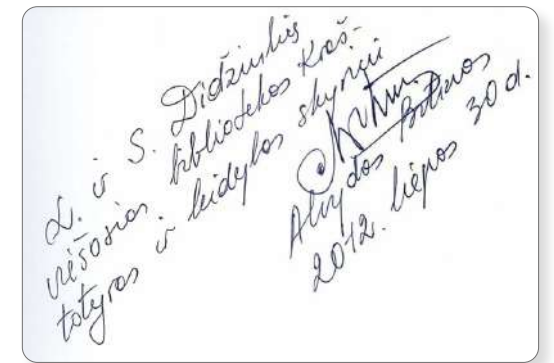 L. ir S. Didžiulių
viešosios bibliotekos Kraš-
totyros ir leidybos skyriui
Alvydas
2012. liepos 30 d.